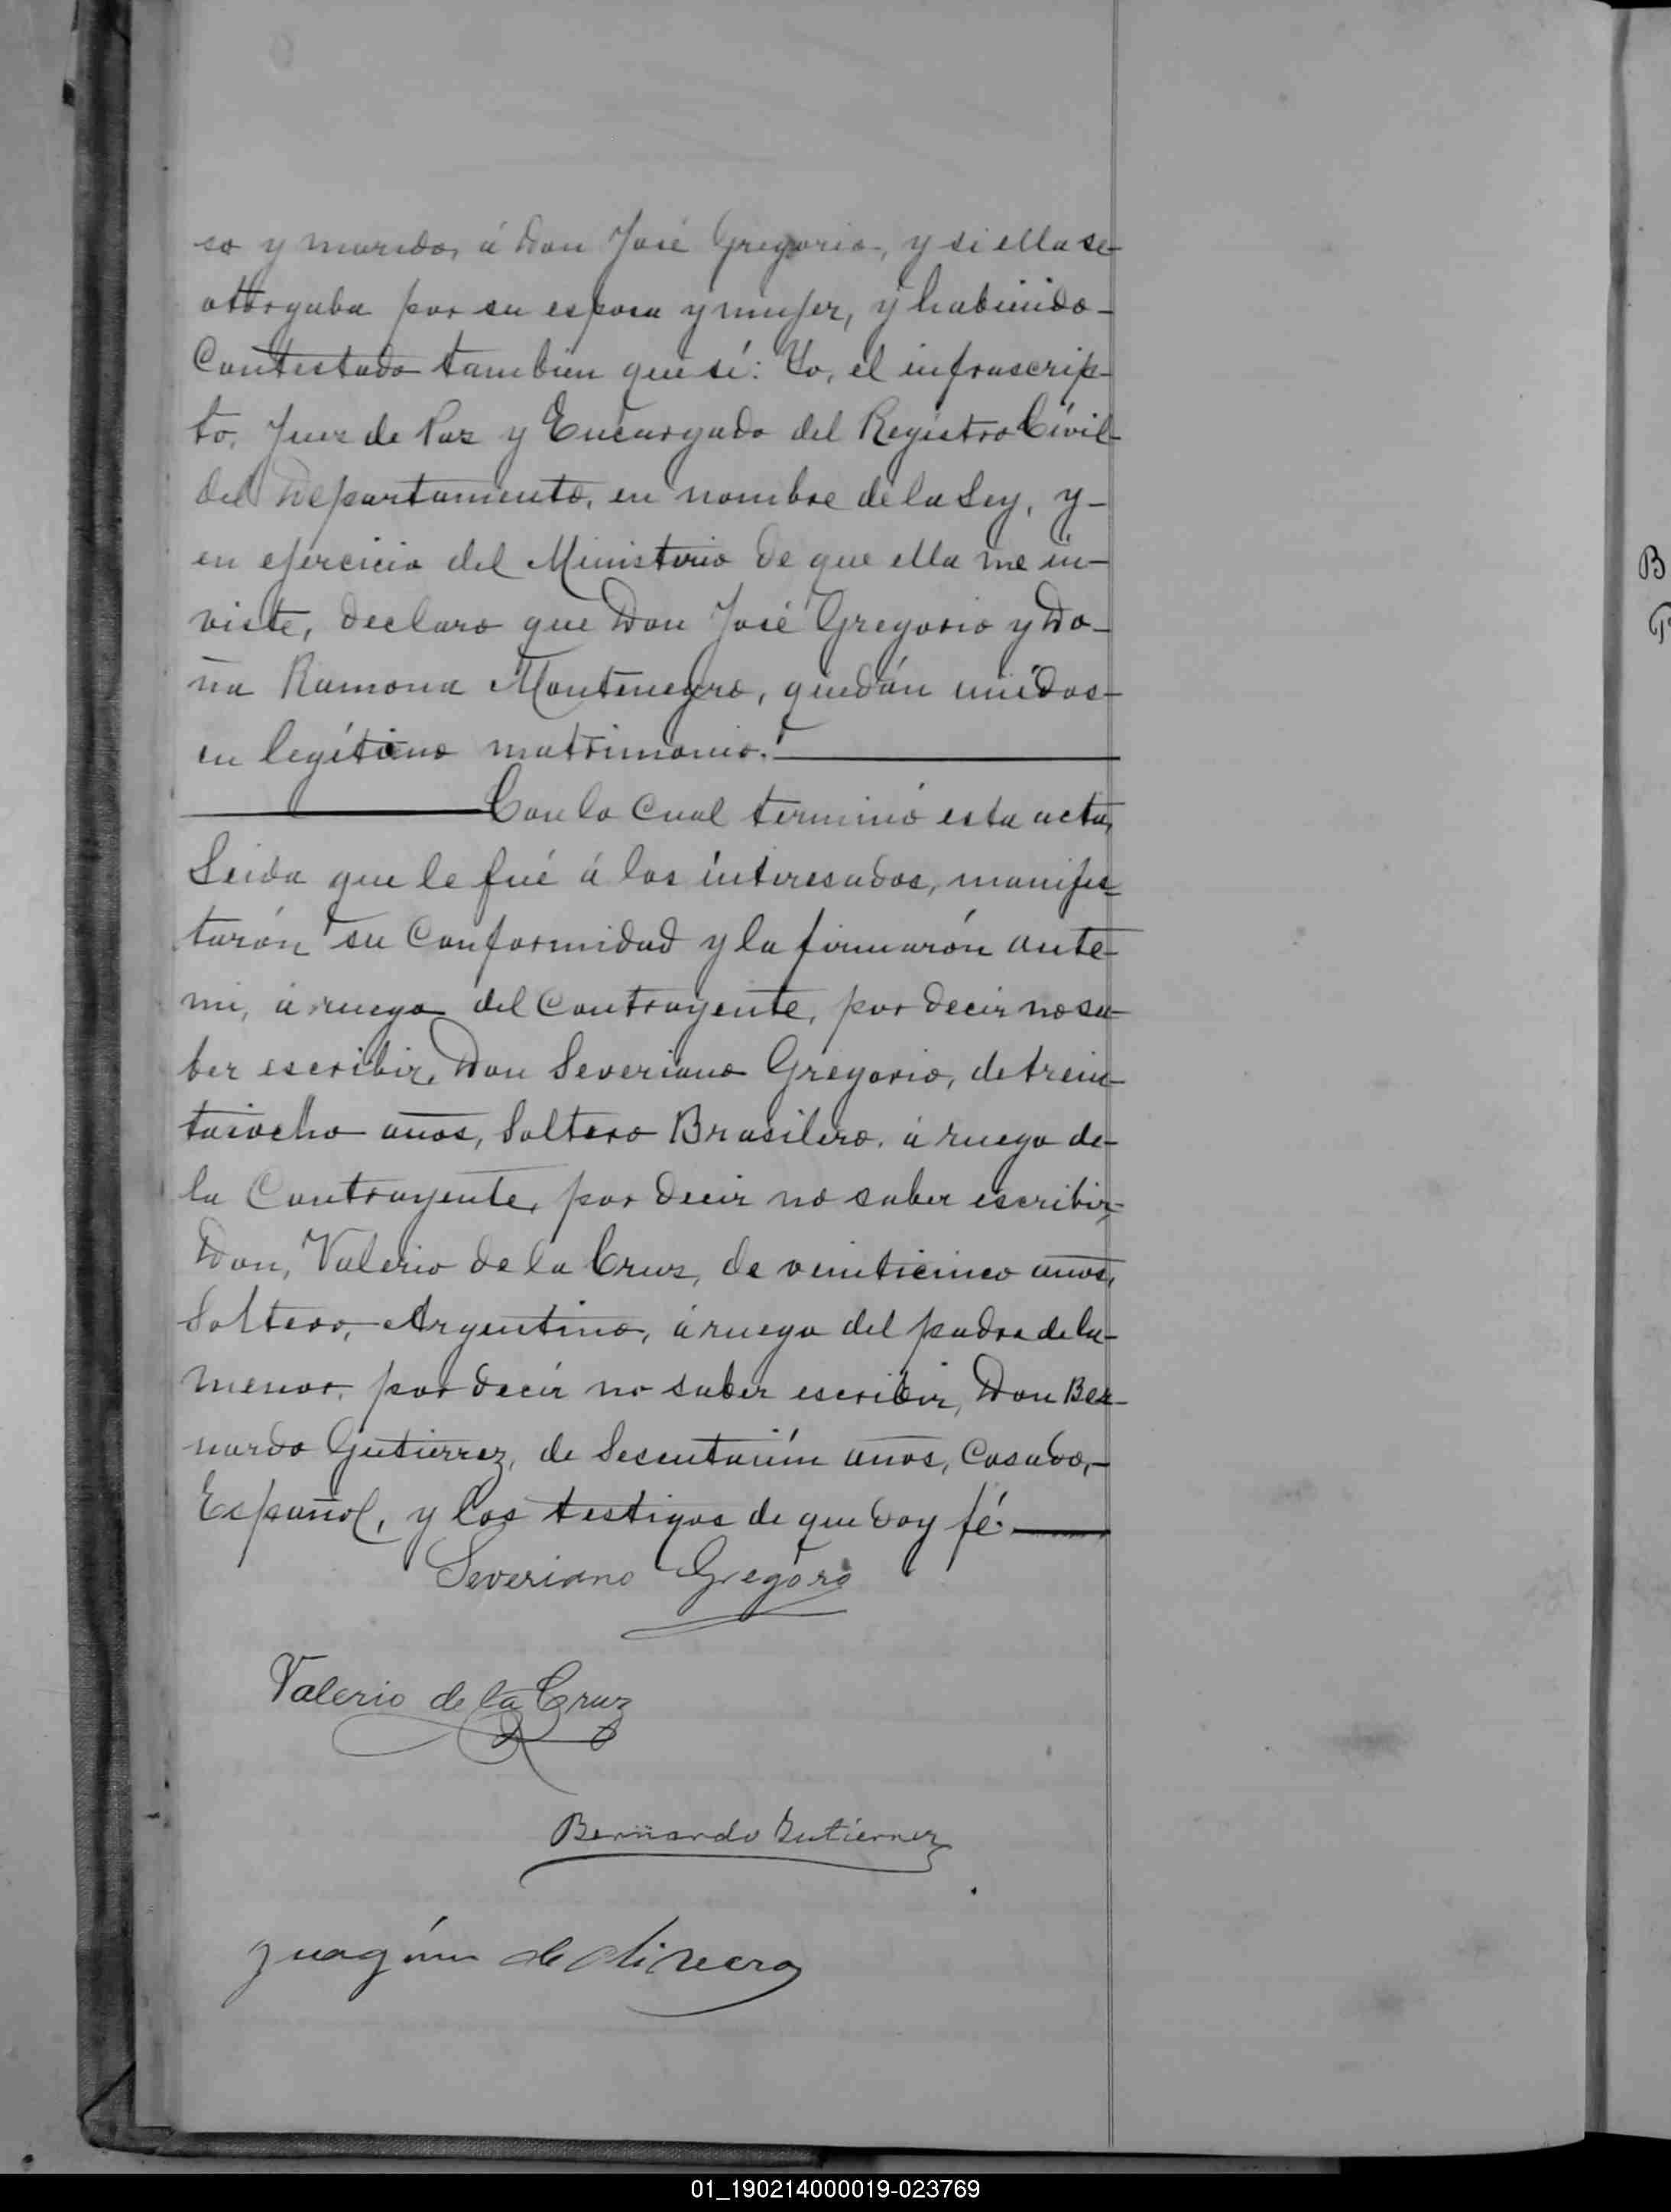 so y marido, á Don José Gregorio, y si ella se
otorgaba por su esposa y mujer, y habiendo
Contestado tambien que sí: Yo, el infrascrip-
to, Juez de Paz y Encargado del Registro Civil
del Departamento, en nombre de la Ley, y
en ejercicio del Ministerio de que ella me in-
viste, declaro que Don José Gregorio y Do-
ña Ramona Montenegro, quedán unidos
en legítimo matrimonio.
Con lo Cual terminó esta acta,
Leida que le fué á los interesados, manifes-
tarón su Conformidad y la firmarón ante
mi, á ruego del Contrayente, por decir no sa-
ber escribir, Don Severiano Gregorio, de trein-
taiocho años, Soltero Brasilero, á ruego de
la Contrayente, por decir no saber escribir,
Don, Valerio de la Cruz, de veinticinco años,
Soltero, Argentino, á ruego del padre de la
menor, por decir no saber escribir, Don Ber-
nardo Gutierrez, de Sesentaiún años, Casado,
Español, y los testigos de que doy fé.
Severiano Gregoro
Valerio de la Cruz
Bernardo Gutierrez
Juaqún de Olivera
B
01_190214000019-023769